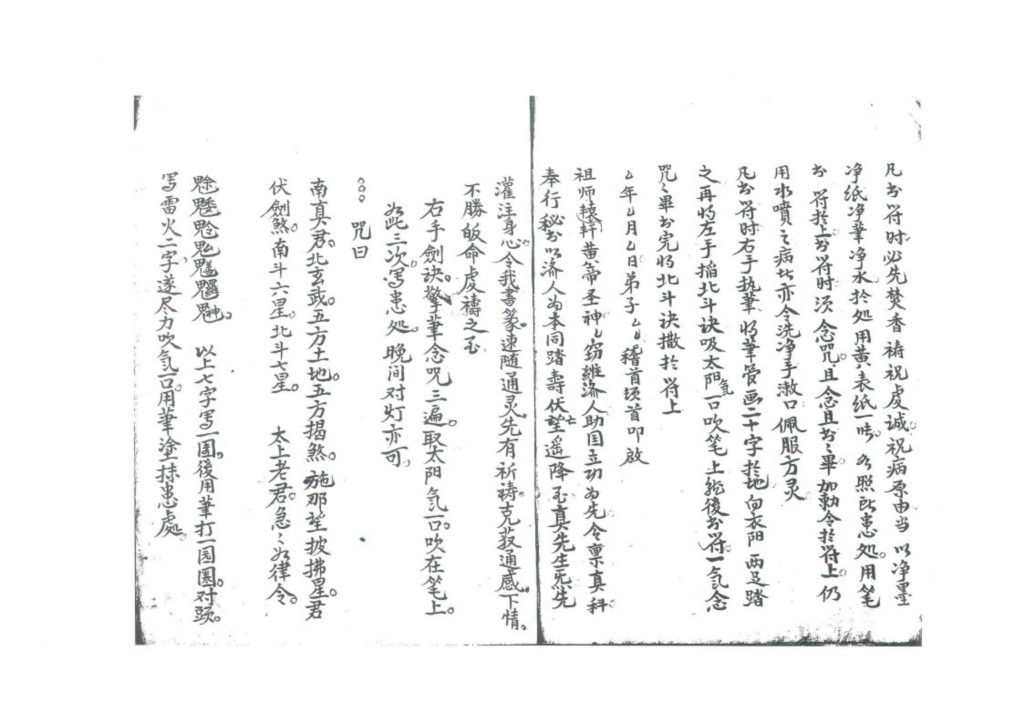 凡书符时必先焚香祷祝虔诚祝病原由当 以净墨
净纸净笔净水於处用黄表纸一 照 患处。用笔
书 符於上。书符时须念咒。且念且书。书毕加勅令於符上。仍
用水喷之病 亦令洗净手漱口 佩服方灵
凡书符时右手执筆 将筆管画二十字於地向衣阳 两足踏
之再将左手搯北斗诀吸太阳氣一口吹笔上 後书符一气念
咒。咒毕书完将北斗诀撒於符上
ㄙ年ㄙ月ㄙ日弟子ㄙㄙ稽首顿首叩啟
祖师轅轩黄帝圣神ㄙ窃維济人助国立功为先令禀真科
奉行秘书以济人为本同踏壽 伏望遥降 真先生 先
灌注身心。令我書篆速随通灵先有祈祷。克 通感。下情。
不勝皈命虔禱之至
右手劍诀。擎筆念咒三遍。取太阳气一口。吹在笔上。
如此三次。写患处。 晚间对灯亦可。
咒曰
南真君。北玄武。五方土地。五方揭煞。 那 披拂星君
伏劍煞。南斗六星。北斗七星。 太上老君。急急如律令。
以上七字写一圆。後用筆打一圆圏。对頭。
写雷火二字。遂尽力吹气一口。用筆塗抹患處。